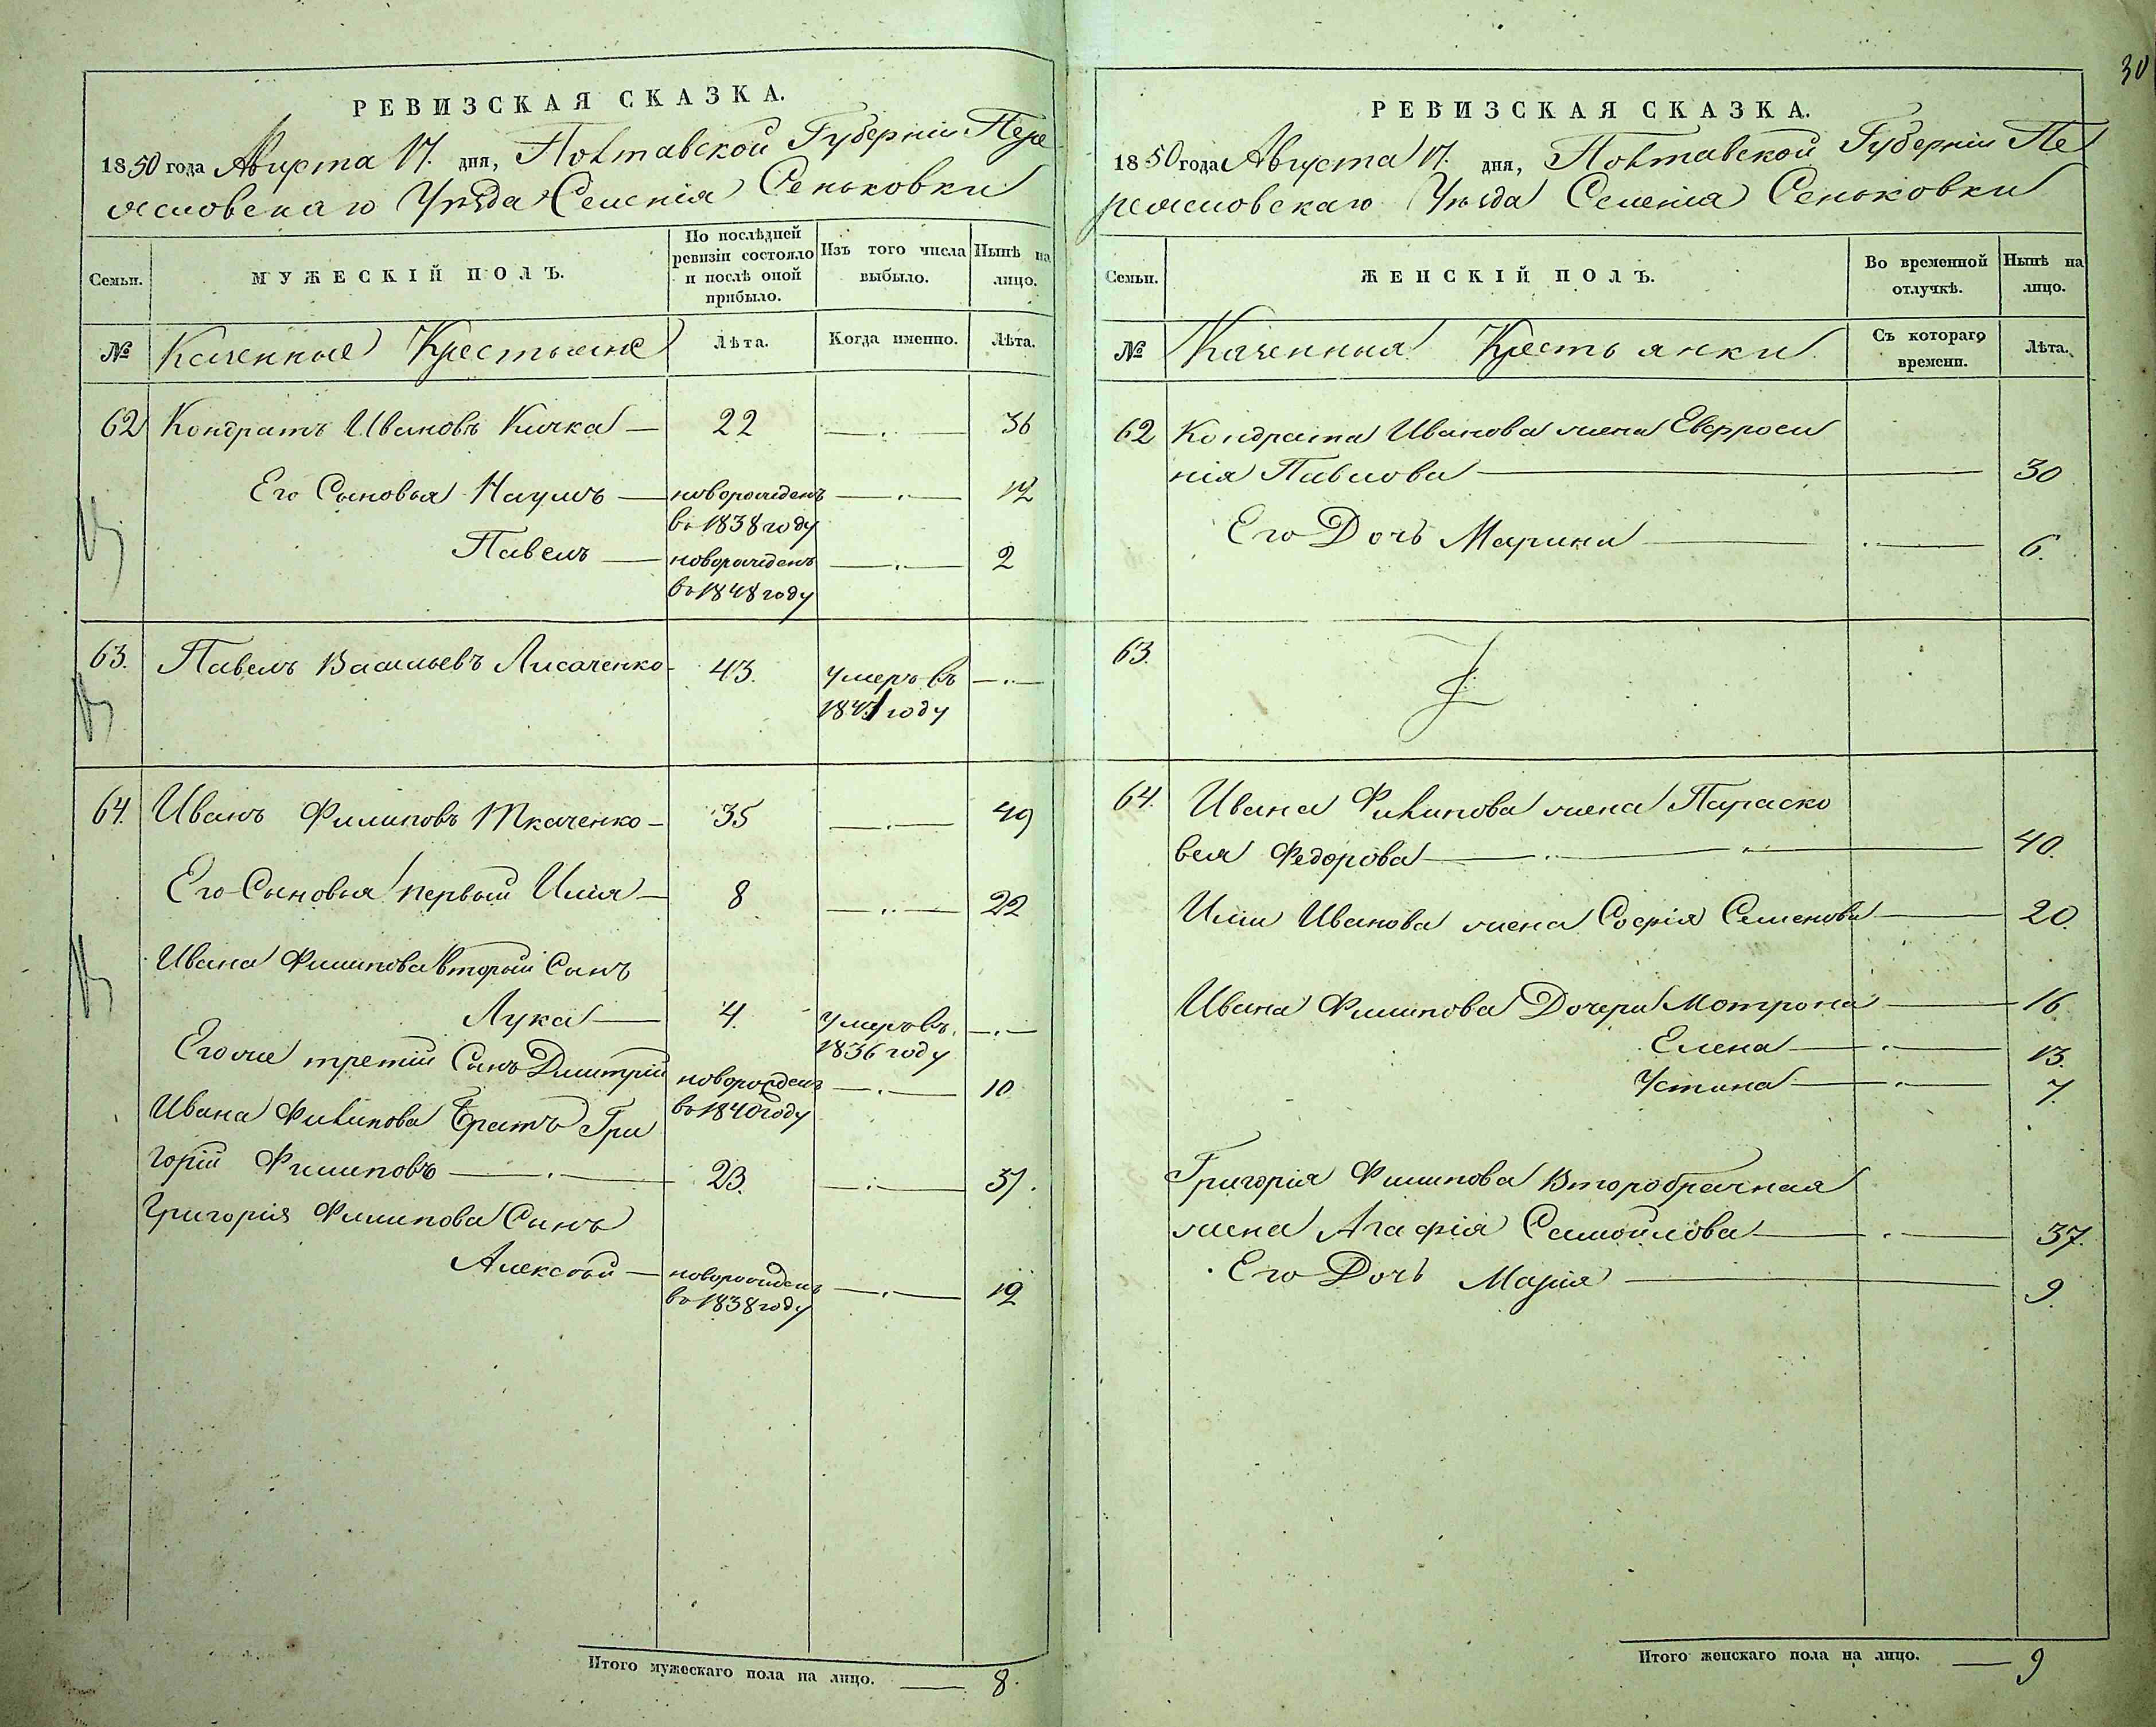 30
РЕВИЗСКАЯ СКАЗКА.
1850 года Августа 17. дня, Полтавской Губерніи Пере
яславскаго Уѣзда Селенія Сеньковки
Семьи.
МУЖЕСКІЙ ПОЛЪ.
По послѣдней
ревизіи состояло
и послѣ оной
прибыло.
Изъ того числа
выбыло.
Нынѣ на
лицо.
№
Казенные Крестьяне
Лѣта.
Когда именно.
Лѣта.
62 Кондратъ Ивановъ Кичка — 22 — 36
Его Сыновья Наумъ — новорожденъ — 12
въ 1838 году
Павелъ — новорожденъ — 2
въ 1848 году
63. Павелъ Васильевъ Лисаченко 43. Умеръ въ —
1841 году
64. Иванъ Филиповъ Ткаченко — 35 — 49
Его Сыновья первый Илія — 8 — 22
Ивана Филипова Второй Сынъ
Лука — 4. Умеръ въ —
1836 году
Его же третій Сынъ Димитрій новорожденъ — 10
въ 1840 году
Ивана Филипова Братъ Гри
горій Филиповъ — 23. — 37.
Григорія Филипова Сынъ
Алексѣй — новорожденъ — 12
въ 1838 году
Итого мужескаго пола на лицо. — 8.
РЕВИЗСКАЯ СКАЗКА.
1850 года Августа 17. дня, Полтавской Губерніи Пе
реяславскаго Уѣзда Селенія Сеньковки
Семьи.
ЖЕНСКІЙ ПОЛЪ.
Во временной
отлучкѣ.
Нынѣ на
лицо.
№
Казенныя Крестьянки
Съ котораго
времени.
Лѣта.
62 Кондрата Иванова жена Евфроси
нія Павлова — 30
Его Дочь Марина — 6.
63.
64. Ивана Филипова жена Параско
вея Федорова — 40.
Иліи Иванова жена Софія Семенова — 20.
Ивана Филипова Дочери Мотрона — 16
Елена — 13.
Устина — 7.
Григорія Филипова Второбрачная
жена Агафія Самойлова — 37.
Его Дочь Марія — 9.
Итого женскаго пола на лицо. — 9